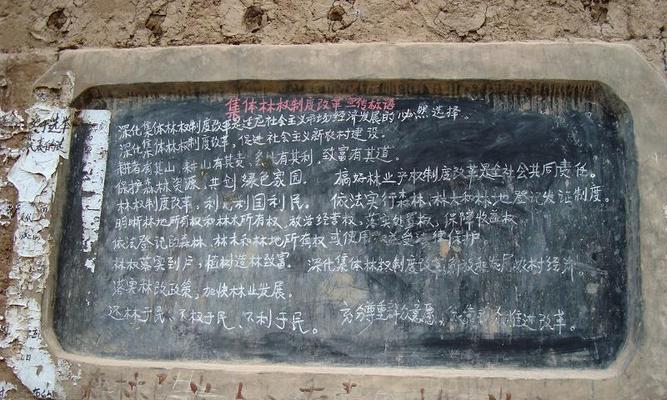 集体林权制度改革宣传标语
深化集体林权制度改革是适应社会主义市场经济发展的必然选择。
深化集体林权制度改革,促进社会主义新农村建设。
耕者有其山,耕山有其责,务林有其利,致富有其道。
保护森林资源,共创绿色家园。 搞好林业产权制度改革是全社会共同责任。
林权制度改革,利民利国利民。 依法实行森林、林木和林地登记发证制度。
明晰林地所有权和林木所有权,放活经营权,落实处置权,保障收益权
依法登记的森林、林木和林地所有权或使用 受法律保护
林权落实到户,植树造林致富. 深化集体林权制度改革, 发展农村经济。
落实林改政策,加快林业发展。
还林于民、还权于民、还利于民。 充分尊重群众意愿, 推进改革。